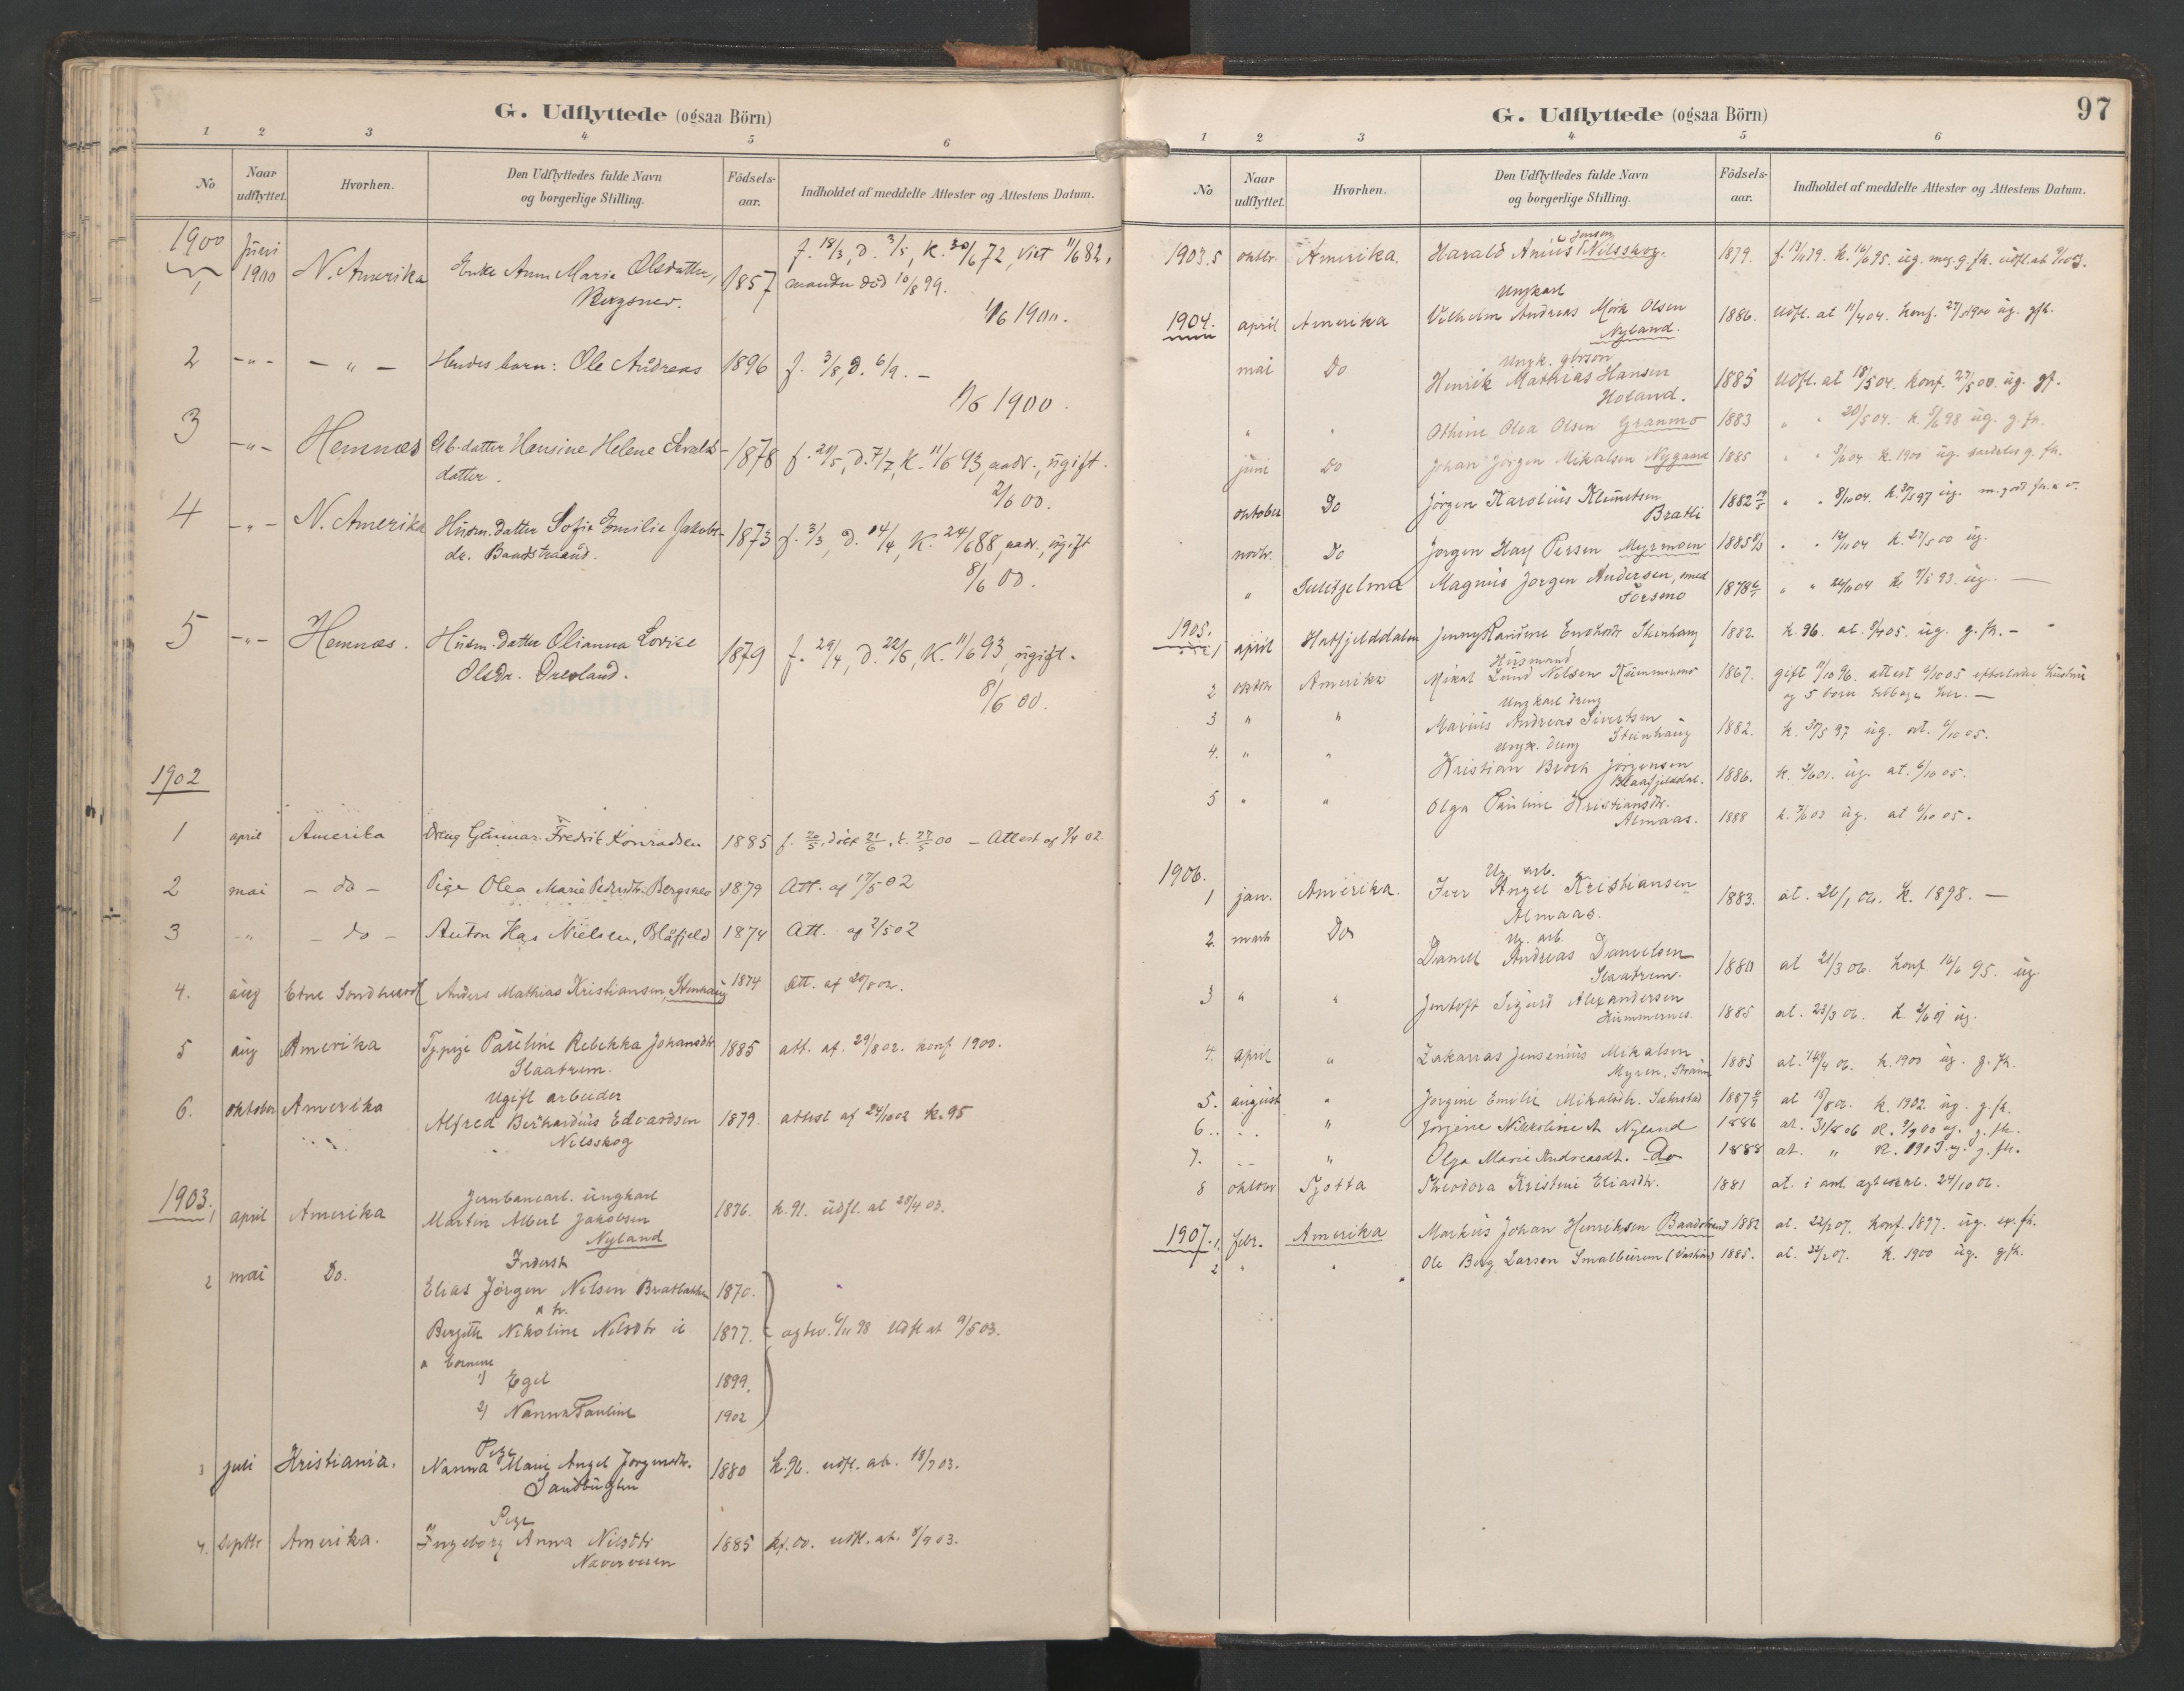 G. Udflyttede (ogsaa Börn)
1 2 3 4 5 6
No
Naar udflyttet.
Hvorhen.
Den Udflyttedes fulde Navn og borgerlige Stilling.
Födselsaar.
Indholdet af meddelte Attester og Attestens Datum.
1900
1 Juni 1900 N. Amerika Enke Anne Marie Olsdatter, 1857 f. 18/3, D. 3/5, K. 30/6 72, viet 11/6 82,
Bergsnev. manden död 10/8 99.
1/6 1900.
2 -"- -"- Hendes barn: Ole Andreas 1896 f. 3/8, D. 6/9. -
1/6 1900.
3 -"- Hemnæs Gb.datter Hansine Helene 1878 f. 29/5, D. 7/7, K. 11/6 93, aadr., ugift.
datter. 2/6 00.
4 -"- N. Amerika Husm. datter Sofie Emilie Jakobs- 1873 f. 3/3, D. 14/4, K. 24/6 88, aadr., ugift
dr. Baadstrand. 8/6 00.
5 -"- Hemnæs. Husm. datter Olianna Lovise 1879 f. 29/4, D. 22/6, K. 11/6 93, ugift.
Olsdr. Öresland. 8/6 00.
1902
1 april Amerika Dreng Gunnar Fredrik Konradsen 1885 f. 20/5, döbt 21/6, k. 27/5 00 - Attest af 7/4 02.
2 mai - do - Pige Olea Marie Pedersdtr. Bergsnev 1879 Att. af 17/5 02
3 -"- - do - Anton Has Nielsen, Blåfjeld 1874 Att. af 7/5 02
4. aug Etne Söndhordl Anders Mathias Kristiansen, Stenhaug 1874 Att. af 20/8 02.
5 aug Amerika Tj.pige Pauline Rebekka Johansdtr 1885 att. af. 29/8 02. konf 1900.
Slaatrem.
Ugift arbeider
6. oktober Amerika Alfred Bernhardius Edvardsen 1879. attest af 24/10 02 k. 95
Nilsskog
1903.
Jernbanearb. ungkarl
1 april Amerika Martin Albert Jakobsen 1876. k. 91. udfl. at 28/4 03.
Nyland
Inderst
2 mai Do. Elias Jörgen Nilsen Bratbakken 1870.
Bergitte Nikoline Nilsdtr 1877. udfl at 9/5 03.
a börnene
1) Egil 1899.
2) Nanna Pauline 1902
Pige
3 juli Kristiania. Nanna Marie Angel Jörgensdtr. 1880 k. 96. udfl. at. 18/7 03.
Sandbugten
Pige
4. septbr Amerika. Ingeborg Anna Nilsdtr 1885 kf. 00. udfl. at. 8/9 03.
97
G. Udflyttede (ogsaa Börn)
1 2 3 4 5 6
No
Naar udflyttet.
Hvorhen.
Den Udflyttedes fulde Navn og borgerlige Stilling.
Födselsaar.
Indholdet af meddelte Attester og Attestens Datum.
Jensen
1903. 5 oktbr. Amerika. Harald Anius Nilsskog. 1879. k. 16/6 95. ug. g. fh. udfl. at
Ungkarl
1904. april Amerika Vilhelm Andreas Mörk Olsen 1886. Udfl. at 11/4 04. konf. 27/5 1900 ug. gfh.
Nyland.
Ungk. gbrsön
mai Do Henrik Mathias Hansen 1885 Udfl. at 18/5 04. konf. 27/5 00. ug. gf.
Holand.
" " Othine Olea Olsen Granmo 1883 " " 20/5 04. k. 5/6 98 ug. g. fh.
juni Do Johan Jörgen Mikalsen Nygaard 1885 " " k. 1900 ug. g. fh.
oktober Do Jörgen Karolius Klemetsen 1882 " " 8/10 04. k. 97 ug.
Bratli
novbr. Do Jörgen Haj Persen Myrmoen 1885 " " 14/11 04 k. 27/5 00 ug.
" Sulitjelma Magnus Jörgen Andersen, smed 1878 " " 24/11 04 k. 7/5 93. ug. -
Forsmo
1905.
1 april Hatfjelddalen Jenny Randine Enoksdr Stenhaug 1882. k. 96. at. 5/4 05. ug. g. fh. -
Husmand
2 oktbr Amerika Mikal Lund Nilsen Hummernes 1867. gift 11/10 96. attest 6/10 05 efterlader hustru
og 5 börn tilbage her. -
Ungkarl dreng
3 " " Marius Andreas Sivertsen 1882. k. 30/5 97 ug. at. 6/10 05.
Stenhaug
Ungk. dreng
4. " " Kristian Broch Jörgensen 1886. k. 01. ug. at. 6/10 05.
Blaafjelddal.
5 " " Olga Pauline Kristiansdtr. 1888 k. 03 ug. at 6/10 05.
Almaas.
1906.
Ug. arb.
1 jan. Amerika. Iver Angel Kristiansen 1883. at. 26/1 06. k. 1898. -
Almaas.
Ug. arb.
2. marts Do Daniel Andreas Danielsen 1880 at 21/3 06. konf. 16/6 95. ug.
Slaatrem.
3 " " Jentoft Sigurd Alexandersen 1885 at. 23/3 06. k. 01 ug.
Hummernes.
4. april " Zakarias Jensenius Mikalsen 1885 at. 14/4 06. k. 1900 ug. g. fh.
Myren,
5. august " Jörgine Emilie Mikalsdtr. 1887 at 18/8 06. k. 1902 ug. g. fh.
6. " " Jörgine Nikoline A Nyland 1886 at. 31/8 06 k. 00 ug. g. fh.
7. " " Olga Marie Andreasdt. Do 1888 at. " k. 1903 ug. g. fh.
8 oktober Tjötta Theodora Kristine Eliasdtr. 1881 at. i anl. 24/10 06.
1907. 1. febr. Amerika Markus Johan Henriksen Baadstrand 1882 at. 22/2 07. konf. 1897. ug. fh.
2 " " Ole Berg Larsen 1885. at. 22/2 07. k. 1900 ug. gfh.